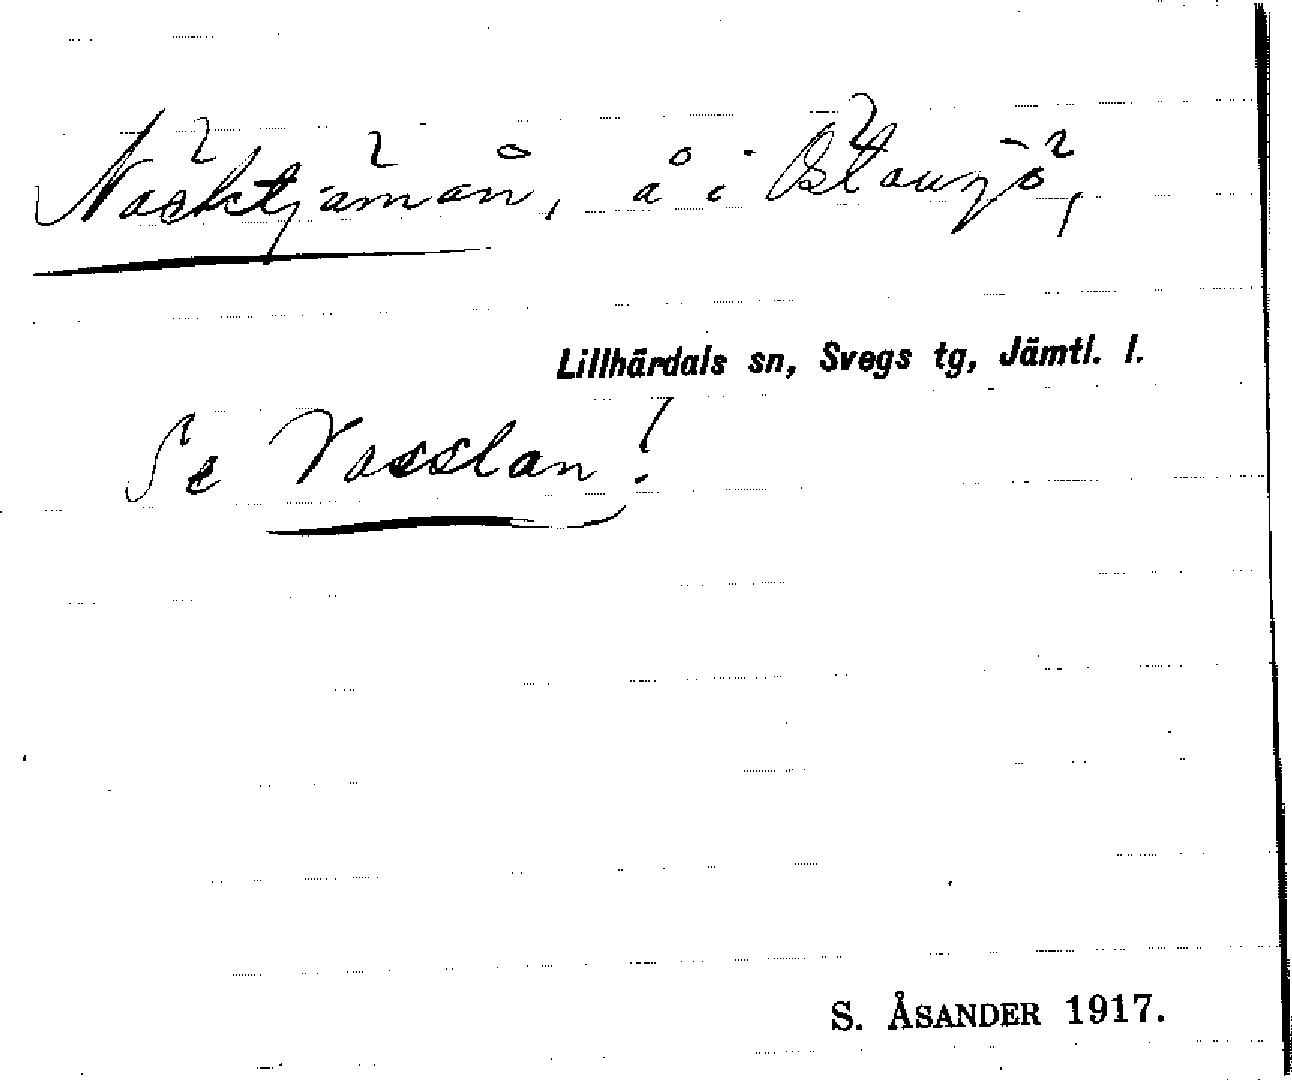 Näcktjärnån, å i Östansjö,
Lillhärdals sn, Svegs tg, Jämtl. l.
Se Vasslan!
S. ÅSANDER 1917.